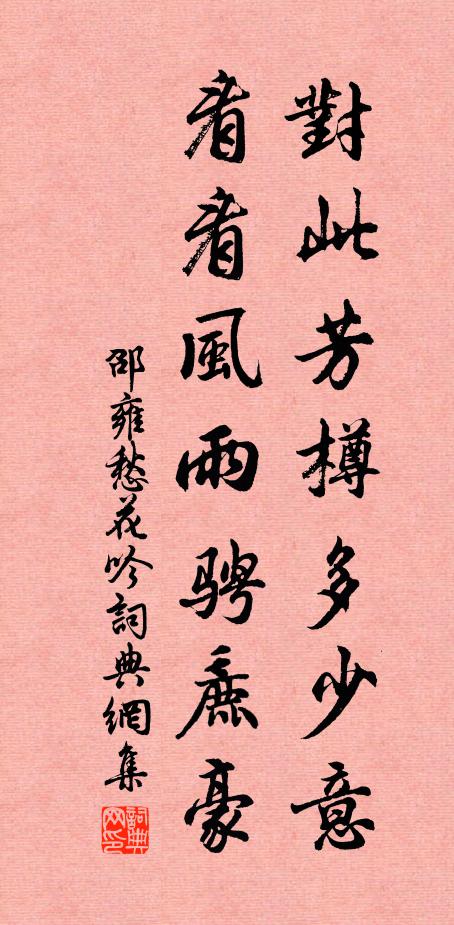 對此芳樽多少意
看看風雨騁麁豪
邵雍愁花吟詞典網集
詞典网印